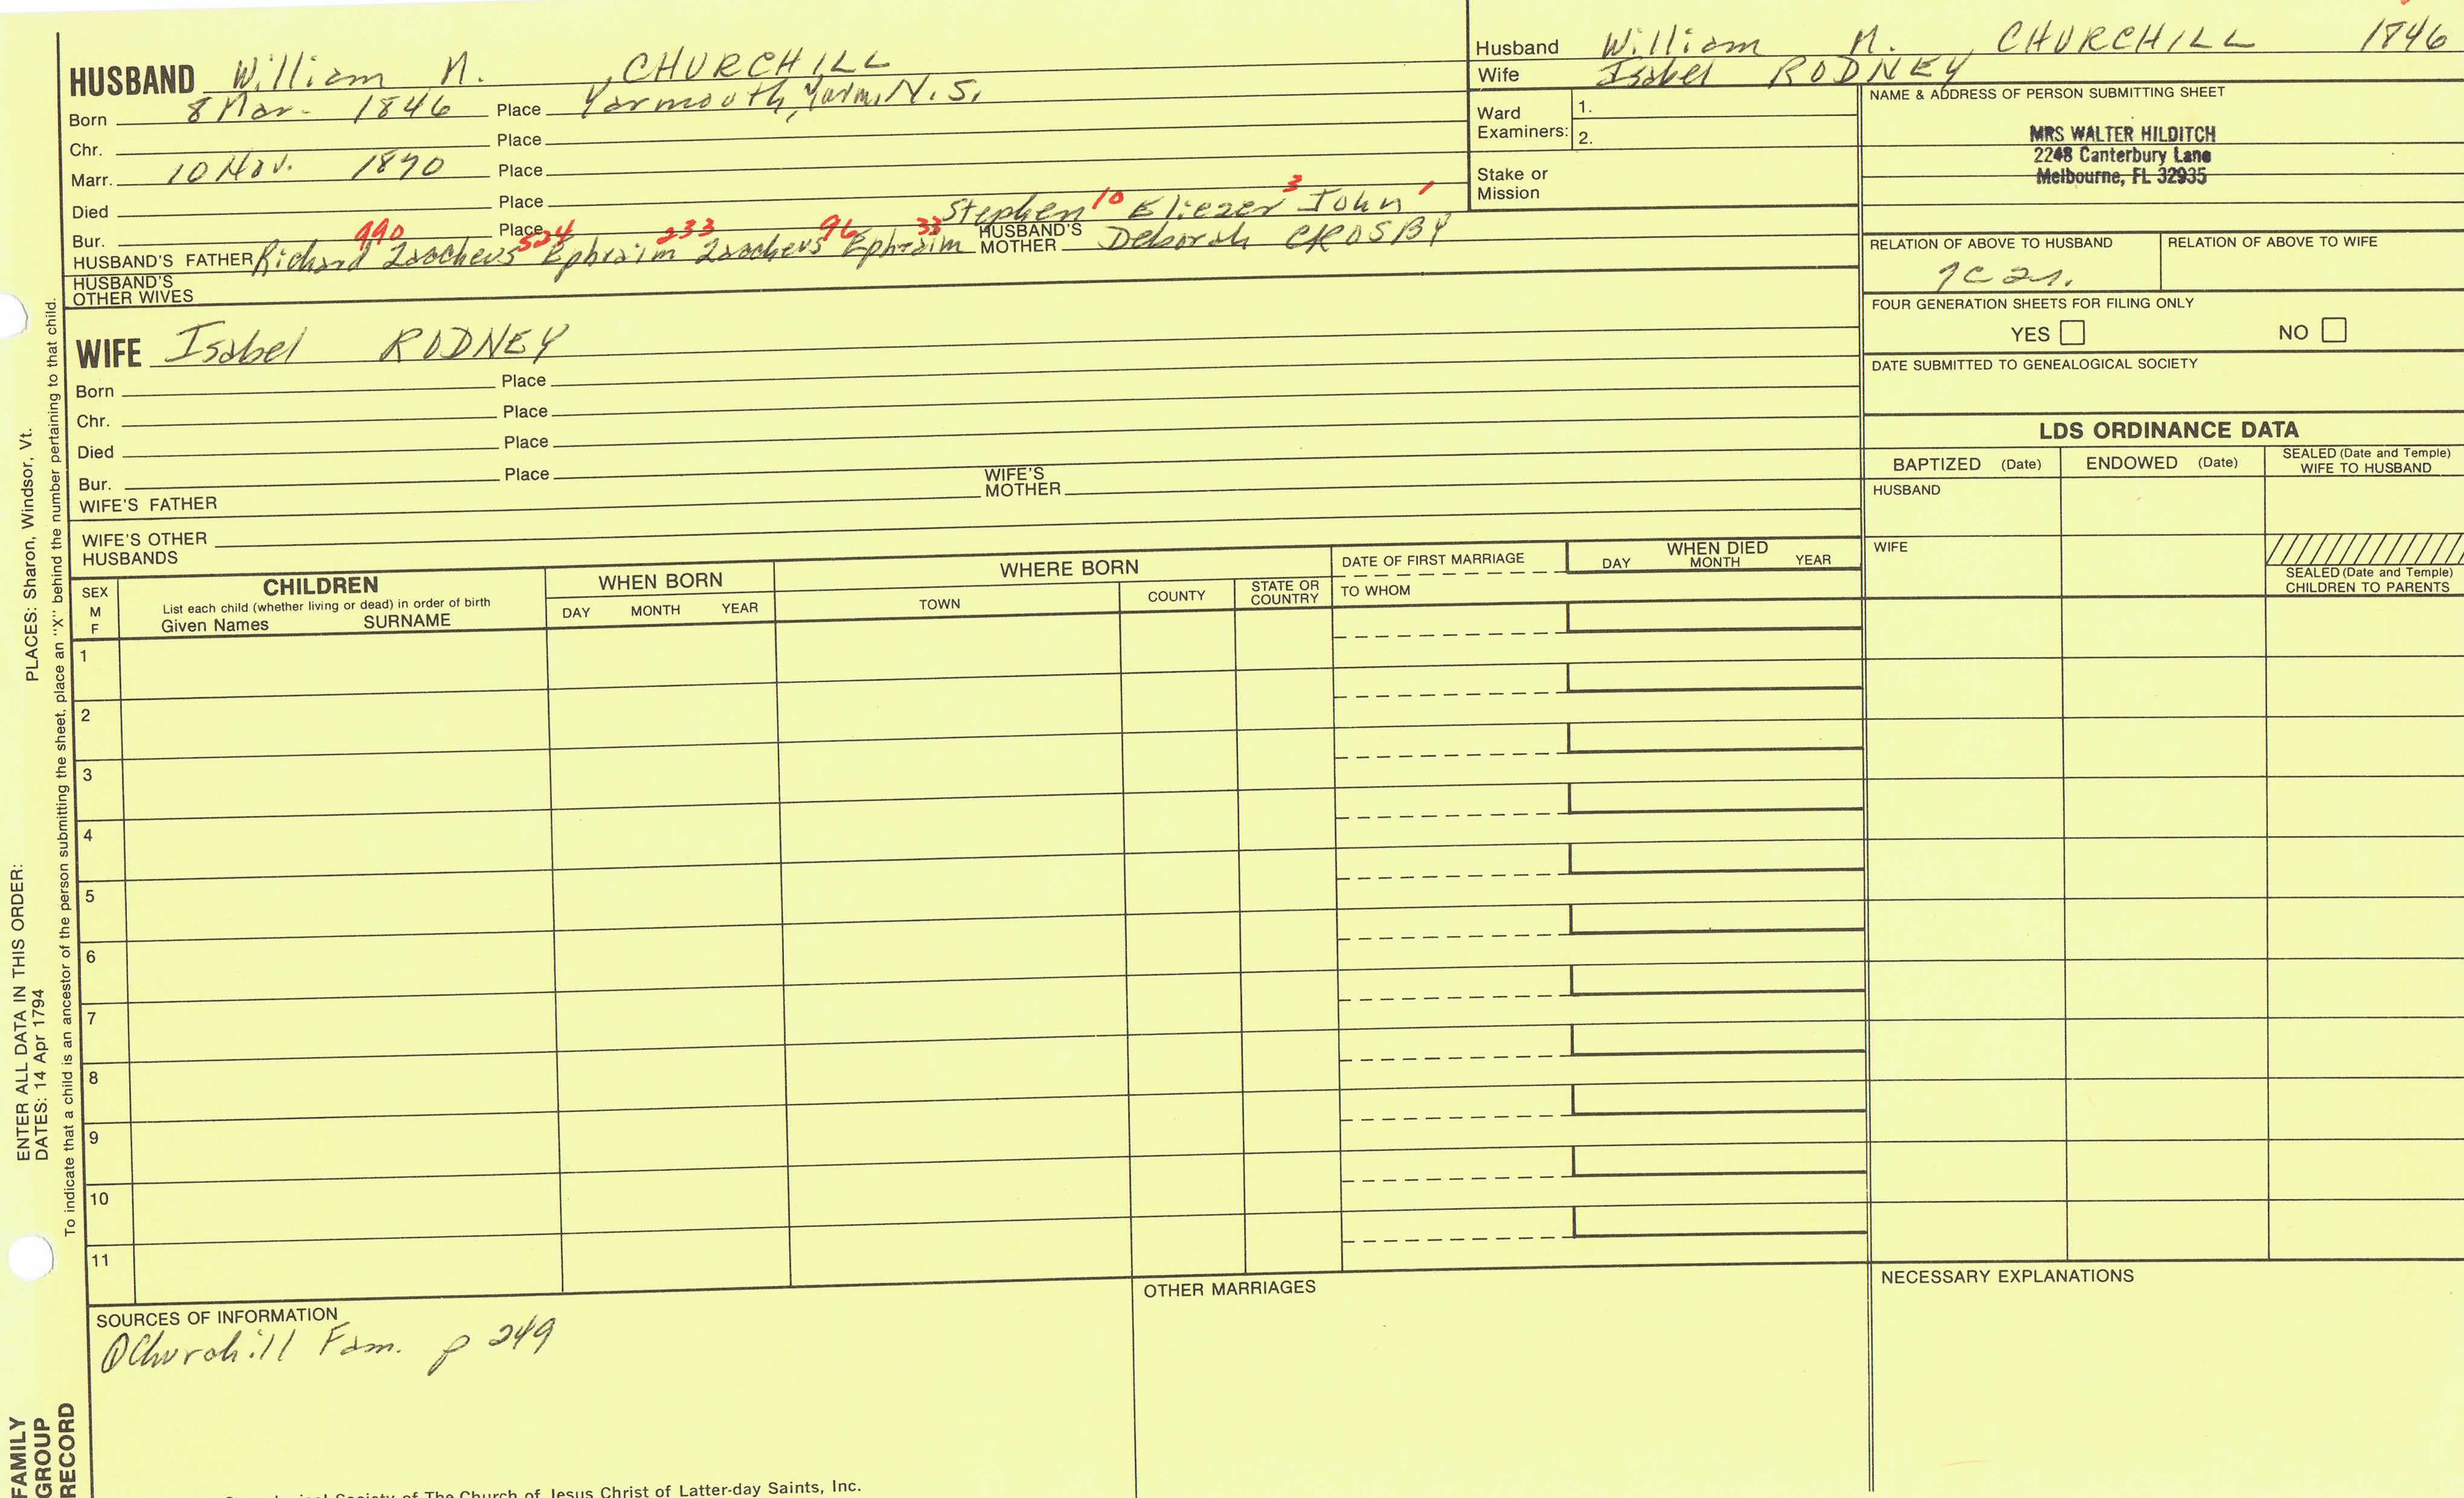 HUSBAND William M. , CHURCHILL
Born 8 Mar. 1846 Place Yarmouth, Yarm, N.S.
Chr. Place
Marr. 10 Nov. 1870 Place
Died Place
Stephen 10 Eliezer 3 John 1
Bur. Place
HUSBAND'S FATHER Richard 990 Zacheus 524 Ephraim 233 Zacheus 96 Ephraim 33 HUSBAND'S MOTHER Deborah CROSBY
HUSBAND'S OTHER WIVES
WIFE Isabel RODNEY
Born Place
Chr. Place
Died Place
Bur. Place
WIFE'S FATHER WIFE'S MOTHER
WIFE'S OTHER HUSBANDS
Husband William M. , CHURCHILL 1846
Wife Isabel RODNEY
Ward Examiners: 1. 2.
Stake or Mission
NAME & ADDRESS OF PERSON SUBMITTING SHEET
MRS WALTER HILDITCH
2248 Canterbury Lane
Melbourne, FL 32935
RELATION OF ABOVE TO HUSBAND RELATION OF ABOVE TO WIFE
7C 2r.
FOUR GENERATION SHEETS FOR FILING ONLY
YES NO
DATE SUBMITTED TO GENEALOGICAL SOCIETY
LDS ORDINANCE DATA
BAPTIZED (Date) ENDOWED (Date) SEALED (Date and Temple) WIFE TO HUSBAND
HUSBAND
WIFE
SEALED (Date and Temple) CHILDREN TO PARENTS
SEX M F
CHILDREN
List each child (whether living or dead) in order of birth
Given Names SURNAME
WHEN BORN
DAY MONTH YEAR
WHERE BORN
TOWN COUNTY STATE OR COUNTRY
DATE OF FIRST MARRIAGE
TO WHOM
WHEN DIED
DAY MONTH YEAR
1
2
3
4
5
6
7
8
9
10
11
SOURCES OF INFORMATION
①Churchill Fam. p 249
OTHER MARRIAGES
NECESSARY EXPLANATIONS
Society of The Church of Jesus Christ of Latter-day Saints, Inc.
PLACES: Sharon, Windsor, Vt.
ENTER ALL DATA IN THIS ORDER:
DATES: 14 Apr 1794
To indicate that a child is an ancestor of the person submitting the sheet, place an "X" behind the number pertaining to that child.
FAMILY
GROUP
RECORD